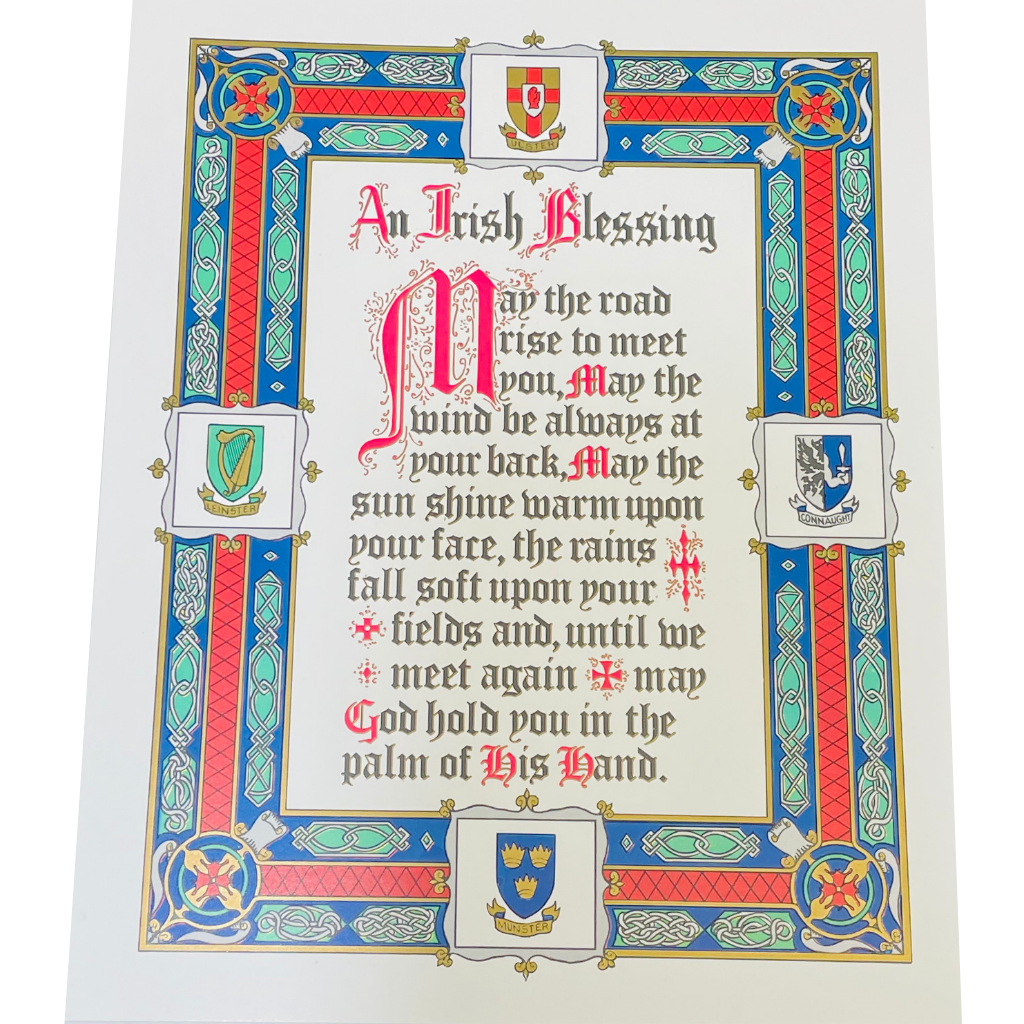 ULSTER
An Irish Blessing
May the road
rise to meet
you, May the
wind be always at
your back, May the
sun shine warm upon
your face, the rains
fall soft upon your
fields and, until we
meet again may
God hold you in the
palm of His Hand.
LEINSTER
CONNAUGHT
MUNSTER